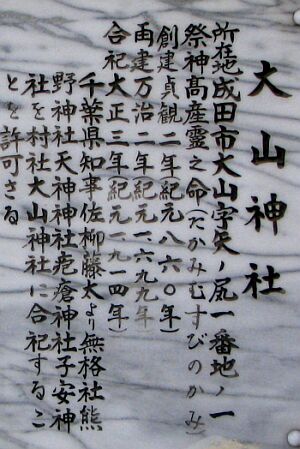 大山神社
所在地成田市大山字矢ノ尻一番地ノ一
祭神髙産霊之命(たかみむすびのかみ)
創建貞観二年(紀元八六〇年)
再建万治二年(紀元一、六九九年)
合祀大正三年(紀元一九一四年)
千葉県知事佐柳藤太より無格社熊
野神社天神神社疱瘡神社子安神
社を村社大山神社に合祀するこ
とを許可さる